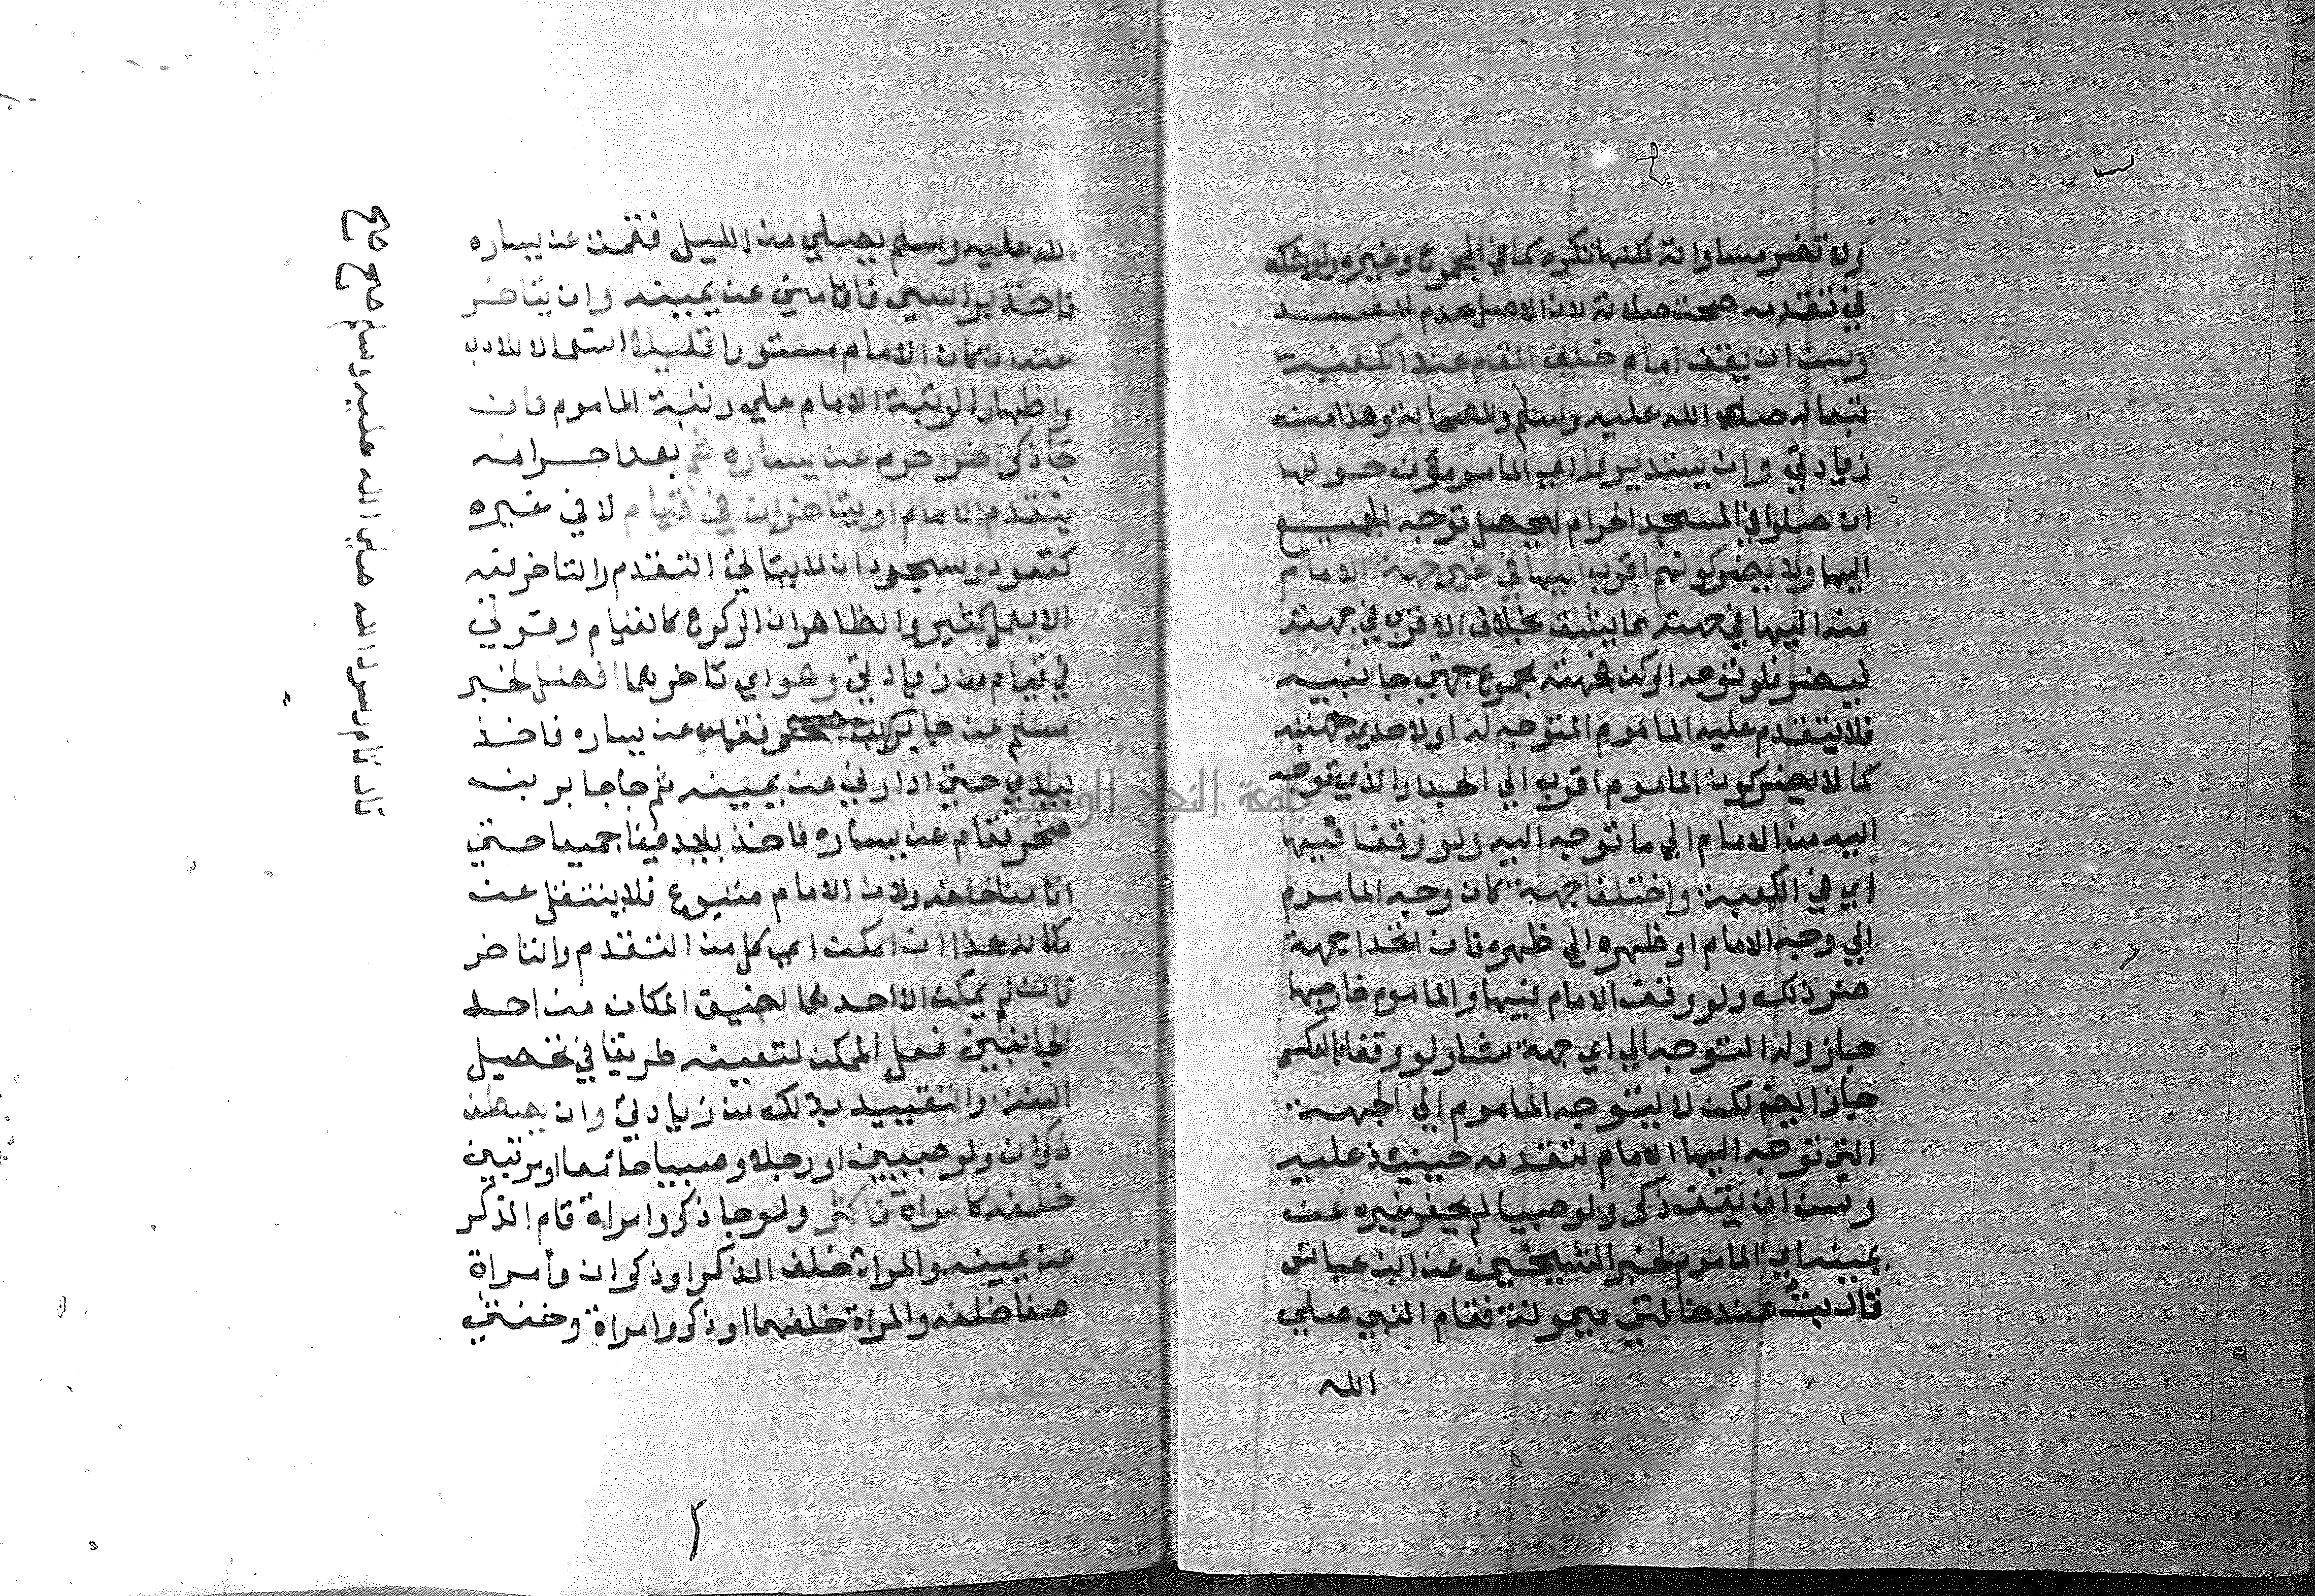 ولا تضر مساواته لكنها تكره كما في المجموع وغيره ولو شك
في تقدمه صحت صلاته لان الاصل عدم المفسد
وسن ان يقف امام خلف المقام عند الكعبة
تبعا له صلى الله عليه وسلم وللصحابة وهذا من
زيادتي وان يستديروا اي المامومون حولها
ان صلوا في المسجد الحرام ليحصل توجه الجميع
اليها ولا يضر كونهم اقرب اليها في غير جهة الامام
منه اليها في جهته بخلاف الاقرب في جهته
فيضر فلو توجه الركن فجهته مجموع جهتي جانبيه
فلا يتقدم عليه الماموم المتوجه له او لاحدي جهتيه
كما لا يضر كون الماموم اقرب الي الجدار الذي توجه
اليه من الامام الي ما توجه اليه ولو وقفا فيها
اي في الكعبة واختلفا جهة كان وجه الماموم
الي وجه الامام او ظهره الي ظهره فان اتحدا جهة
ضر ذلك ولو وقف الامام فيها والماموم خارجها
جاز وله التوجه الي اي جهة شا ولو وقفا بالعكس
جاز ايضا لكن لا يتوجه الماموم الي الجهة
التي توجه اليها الامام لتقدمه حينئذ عليه
وسن ان يقف ذكر ولو صبيا لم يحضر غيره عن
يمينه اي الماموم لخبر الشيخين عن ابن عباس
قال بت عند خالتي ميمونة فقام النبي صلي
الله
الله عليه وسلم يصلي من الليل فقمت عن يساره
فاخذ براسي فاقامني عن يمينه وان يتاخر
عنه ان كان الامام مستورا قليلا استعمالا للادب
واظهارا لرتبة الامام علي رتبة الماموم فان
جا ذكر اخر احرم عن يساره ثم بعد احرامه
يتقدم الامام او يتاخران في قيام لا في غيره
كقعود وسجود اذ لا يتاتي التقدم والتاخر فيه
الا بعمل كثير والظاهر ان الركوع كالقيام وقولي
في قيام من زيادتي وهو اي تاخرهما افضل لخبر
مسلم عن جابر فقمت عن يساره فاخذ
بيدي حتي ادارني عن يمينه ثم جا جابر بن
صخر فقام عن يساره فاخذ بايدينا جميعا حتي
اقامنا خلفه ولان الامام متبوع فلا ينتقل عن
مكانه هذا ان امكن اي كل من التقدم والتاخر
فان لم يمكن الا احدهما لضيق المكان من احد
الجانبين فعل الممكن لتعيينه طريقا في تحصيل
السنة والتقييد بذلك من زيادتي وان يصطف
ذكران ولو صبيين او رجلا وصبيا جاءا معا او مرتبين
خلفه كامراة فاكثر ولو جا ذكر وامراة قام الذكر
عن يمينه والمراة خلف الذكر او ذكران وامراة
صفا خلفه والمراة خلفهما او ذكر وامراة وخنثي
قال قام رسول الله صلي الله عليه وسلم
جامعة النجاح الوطنية